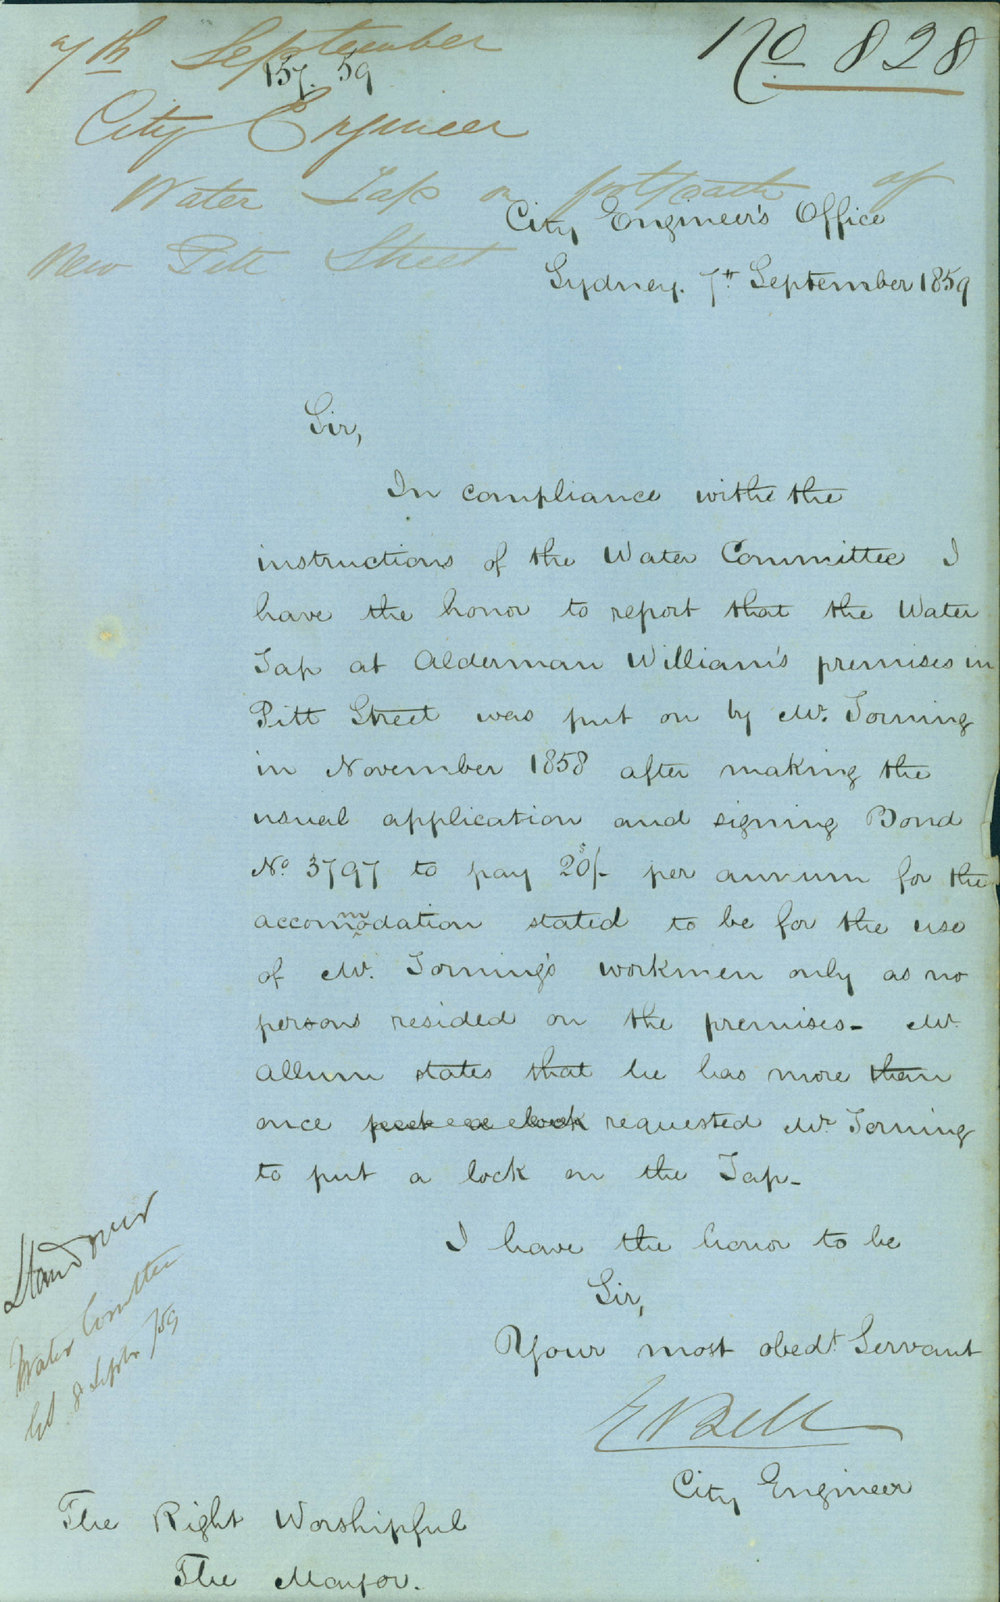 7th September
157. 59
No 828
City Engineer
Water Tap on footpath of
New Pitt Street
City Engineer's Office
Sydney. 7th September 1859
Sir,
In compliance withe the
instructions of the Water Committee I
have the honor to report that the Water
Tap at Alderman William's premises in
Pitt Street was put on by Mr. Torning
in November 1858 after making the
usual application and signing Bond
No 3797 to pay 20/- per annum for the
accommodation stated to be for the use
of Mr. Torning's workmen only as no
persons resided on the premises - Mr.
Allum states that he has more than
once put a lock requested Mr. Torning
to put a lock on the Tap -
I have the honor to be
Sir,
Your most obedt. Servant
E Bell
City Engineer
Stand over
Water Comttee
8 Septr /59
The Right Worshipful
The Mayor.